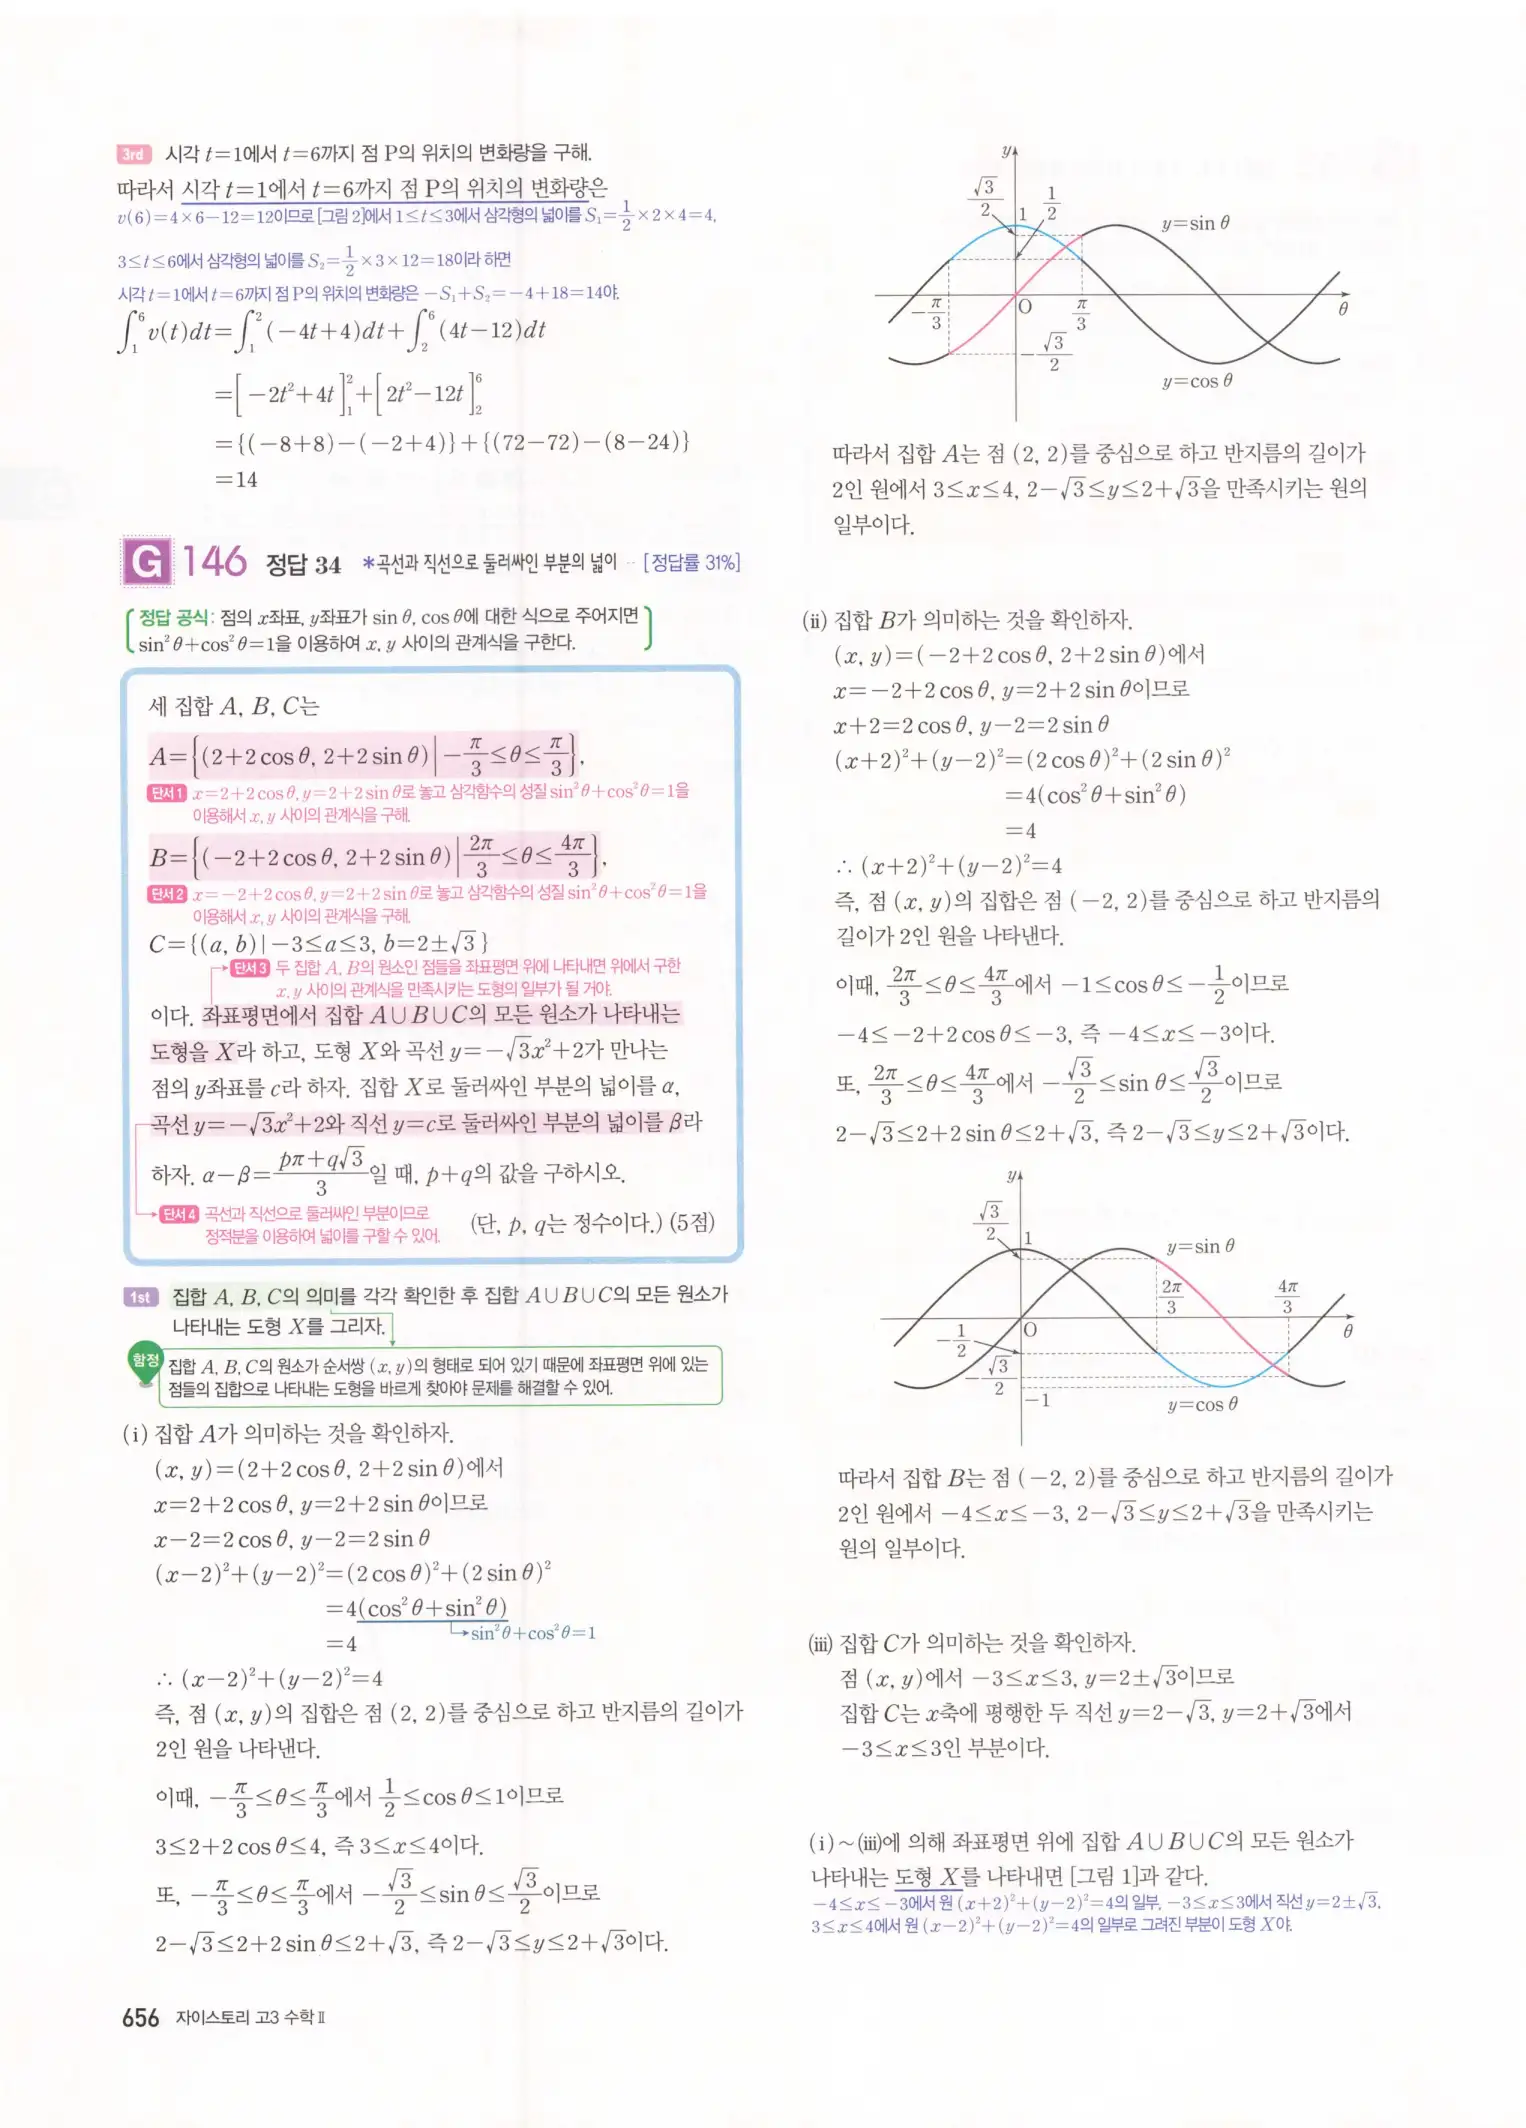 3rd 시각 t=1에서 t=6까지 점 P의 위치의 변화량을 구해.
따라서 시각 t=1에서 t=6까지 점 P의 위치의 변화량은
v(6)=4×6−12=12이므로 [그림 2]에서 1≤t≤3에서 삼각형의 넓이를 S₁=1/2×2×4=4,
3≤t≤6에서 삼각형의 넓이를 S₂=1/2×3×12=18이라 하면
시각 t=1에서 t=6까지 점 P의 위치의 변화량은 −S₁+S₂=−4+18=14야.
∫₁⁶v(t)dt=∫₁²(−4t+4)dt+∫₂⁶(4t−12)dt
=[−2t²+4t]₁²+[2t²−12t]₂⁶
={(−8+8)−(−2+4)}+{(72−72)−(8−24)}
=14
G 146 정답 34 *곡선과 직선으로 둘러싸인 부분의 넓이 ·· [정답률 31%]
정답 공식: 점의 x좌표, y좌표가 sin θ, cos θ에 대한 식으로 주어지면
sin²θ+cos²θ=1을 이용하여 x, y 사이의 관계식을 구한다.
세 집합 A, B, C는
A={(2+2 cos θ, 2+2 sin θ)|−π/3≤θ≤π/3},
단서1 x=2+2 cos θ, y=2+2 sin θ로 놓고 삼각함수의 성질 sin²θ+cos²θ=1을
이용해서 x, y 사이의 관계식을 구해.
B={(−2+2 cos θ, 2+2 sin θ)|2π/3≤θ≤4π/3},
단서2 x=−2+2 cos θ, y=2+2 sin θ로 놓고 삼각함수의 성질 sin²θ+cos²θ=1을
이용해서 x, y 사이의 관계식을 구해.
C={(a, b)|−3≤a≤3, b=2±√3}
단서3 두 집합 A, B의 원소인 점들을 좌표평면 위에 나타내면 위에서 구한
x, y 사이의 관계식을 만족시키는 도형의 일부가 될 거야.
이다. 좌표평면에서 집합 A∪B∪C의 모든 원소가 나타내는
도형을 X라 하고, 도형 X와 곡선 y=−√3x²+2가 만나는
점의 y좌표를 c라 하자. 집합 X로 둘러싸인 부분의 넓이를 α,
곡선 y=−√3x²+2와 직선 y=c로 둘러싸인 부분의 넓이를 β라
하자. α−β=(pπ+q√3)/3일 때, p+q의 값을 구하시오.
단서4 곡선과 직선으로 둘러싸인 부분이므로
정적분을 이용하여 넓이를 구할 수 있어.
(단, p, q는 정수이다.) (5점)
1st 집합 A, B, C의 의미를 각각 확인한 후 집합 A∪B∪C의 모든 원소가
나타내는 도형 X를 그리자.
함정 집합 A, B, C의 원소가 순서쌍 (x, y)의 형태로 되어 있기 때문에 좌표평면 위에 있는
점들의 집합으로 나타내는 도형을 바르게 찾아야 문제를 해결할 수 있어.
(ⅰ) 집합 A가 의미하는 것을 확인하자.
(x, y)=(2+2 cos θ, 2+2 sin θ)에서
x=2+2 cos θ, y=2+2 sin θ이므로
x−2=2 cos θ, y−2=2 sin θ
(x−2)²+(y−2)²=(2 cos θ)²+(2 sin θ)²
=4(cos²θ+sin²θ)
sin²θ+cos²θ=1
=4
∴ (x−2)²+(y−2)²=4
즉, 점 (x, y)의 집합은 점 (2, 2)를 중심으로 하고 반지름의 길이가
2인 원을 나타낸다.
이때, −π/3≤θ≤π/3에서 1/2≤cos θ≤1이므로
3≤2+2 cos θ≤4, 즉 3≤x≤4이다.
또, −π/3≤θ≤π/3에서 −√3/2≤sin θ≤√3/2이므로
2−√3≤2+2 sin θ≤2+√3, 즉 2−√3≤y≤2+√3이다.
656 자이스토리 고3 수학Ⅱ
y
√3/2
1
1/2
y=sin θ
−π/3
O
π/3
θ
−√3/2
y=cos θ
따라서 집합 A는 점 (2, 2)를 중심으로 하고 반지름의 길이가
2인 원에서 3≤x≤4, 2−√3≤y≤2+√3을 만족시키는 원의
일부이다.
(ⅱ) 집합 B가 의미하는 것을 확인하자.
(x, y)=(−2+2 cos θ, 2+2 sin θ)에서
x=−2+2 cos θ, y=2+2 sin θ이므로
x+2=2 cos θ, y−2=2 sin θ
(x+2)²+(y−2)²=(2 cos θ)²+(2 sin θ)²
=4(cos²θ+sin²θ)
=4
∴ (x+2)²+(y−2)²=4
즉, 점 (x, y)의 집합은 점 (−2, 2)를 중심으로 하고 반지름의
길이가 2인 원을 나타낸다.
이때, 2π/3≤θ≤4π/3에서 −1≤cos θ≤−1/2이므로
−4≤−2+2 cos θ≤−3, 즉 −4≤x≤−3이다.
또, 2π/3≤θ≤4π/3에서 −√3/2≤sin θ≤√3/2이므로
2−√3≤2+2 sin θ≤2+√3, 즉 2−√3≤y≤2+√3이다.
y
√3/2
1
y=sin θ
2π/3
4π/3
−1/2
O
θ
−√3/2
−1
y=cos θ
따라서 집합 B는 점 (−2, 2)를 중심으로 하고 반지름의 길이가
2인 원에서 −4≤x≤−3, 2−√3≤y≤2+√3을 만족시키는
원의 일부이다.
(ⅲ) 집합 C가 의미하는 것을 확인하자.
점 (x, y)에서 −3≤x≤3, y=2±√3이므로
집합 C는 x축에 평행한 두 직선 y=2−√3, y=2+√3에서
−3≤x≤3인 부분이다.
(ⅰ)~(ⅲ)에 의해 좌표평면 위에 집합 A∪B∪C의 모든 원소가
나타내는 도형 X를 나타내면 [그림 1]과 같다.
−4≤x≤−3에서 원 (x+2)²+(y−2)²=4의 일부, −3≤x≤3에서 직선 y=2±√3,
3≤x≤4에서 원 (x−2)²+(y−2)²=4의 일부로 그려진 부분이 도형 X야.